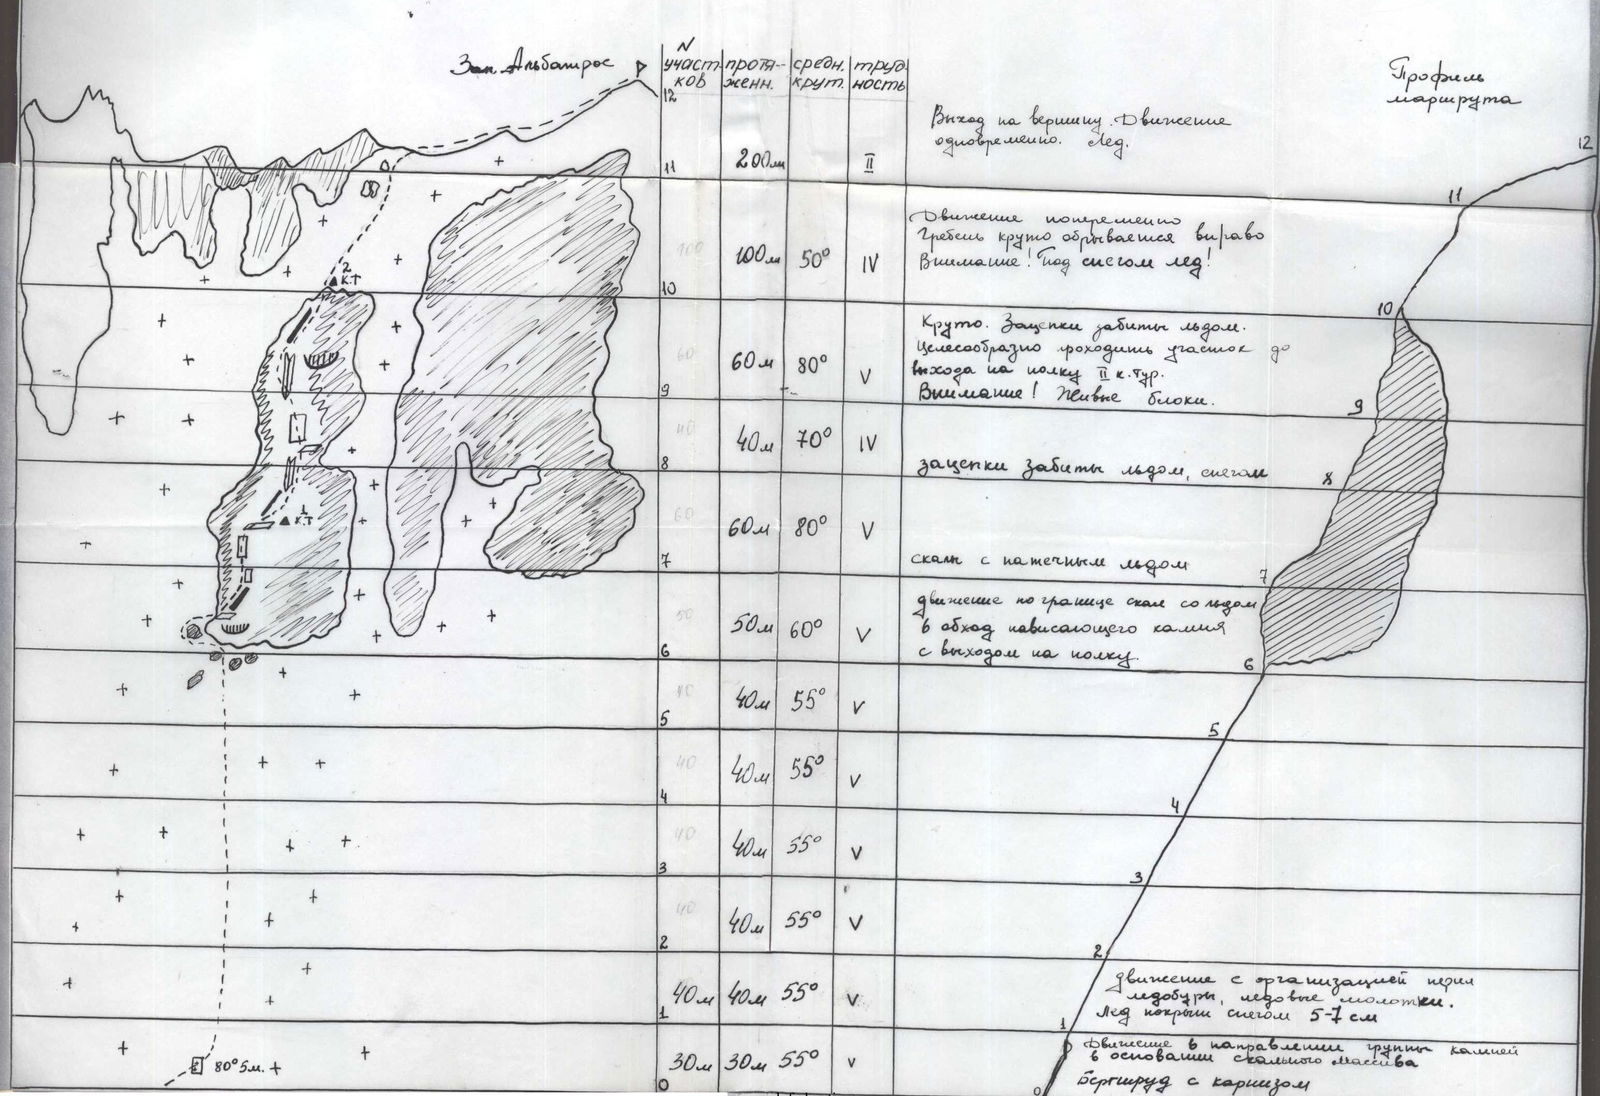 Зап. Альбатрос
N участков
протяженн.
средн. крут.
трудность
Профиль
маршрута
12
12
Выход на вершину. Движение
одновременно. Лед.
200м
II
11
11
Движение попеременно
Гребень круто обрывается вправо
Внимание! Под снегом лед!
100
100м
50°
IV
2
к.т
10
10
Круто. Зацепки забиты льдом.
Целесообразно проходить участок до
выхода на полку II к.тур.
Внимание! Живые блоки.
60
60м
80°
V
9
9
40
40м
70°
IV
зацепки забиты льдом, снегом
8
8
60
60м
80°
V
1
к.т
скалы с натечным льдом
7
7
движение по границе скал со льдом
в обход нависающего камня
с выходом на полку.
50
50м
60°
V
6
6
40
40м
55°
V
5
5
40
40м
55°
V
4
4
40
40м
55°
V
3
3
40
40м
55°
V
2
2
движение с организацией перил
ледобуры, ледовые молотки.
Лед покрыт снегом 5-7 см
40м
40м
55°
V
1
1
Движение в направлении группы камней
в основании скального массива
Бергшрунд с карнизом
80° 5м.
30м
30м
55°
V
0
0